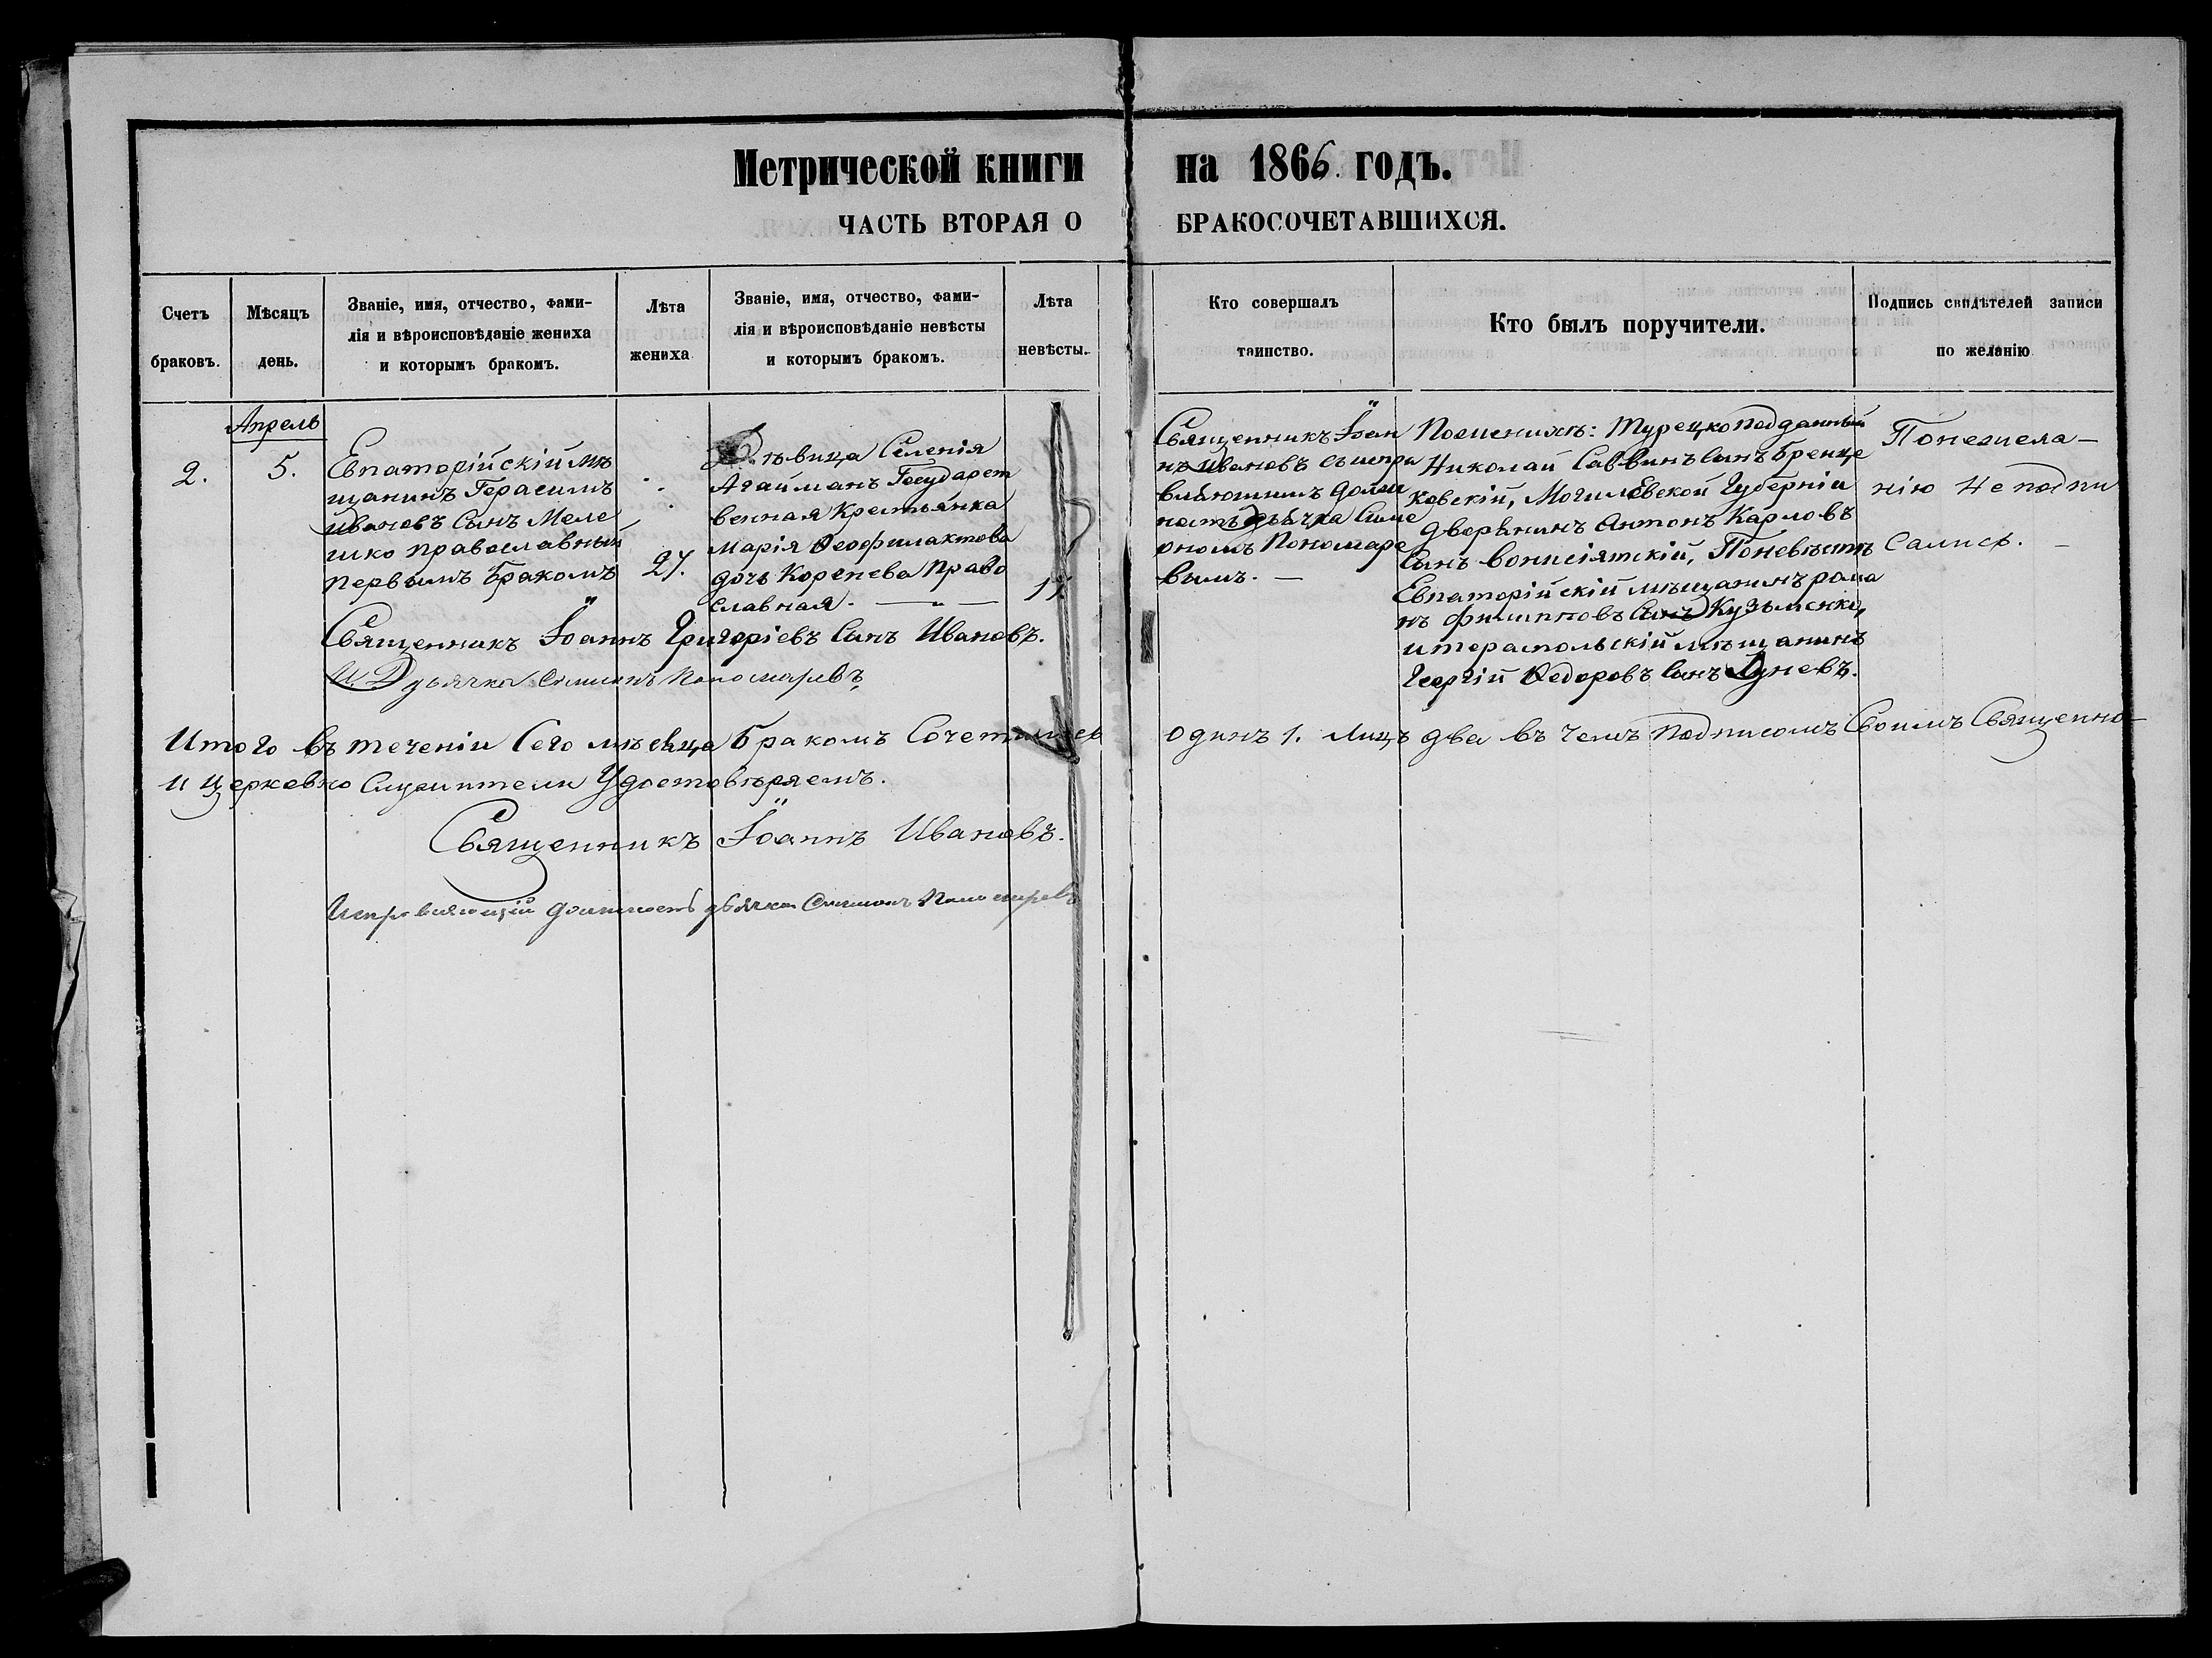 Метрической книги на 1866 годъ.
ЧАСТЬ ВТОРАЯ О БРАКОСОЧЕТАВШИХСЯ.
Счетъ браковъ.
Мѣсяцъ день.
Званіе, имя, отчество, фами-
лія и вѣроисповѣданіе жениха
и которымъ бракомъ.
Лѣта
жениха
Званіе, имя, отчество, фами-
лія и вѣроисповѣданіе невѣсты
и которымъ бракомъ.
Лѣта
невѣсты.
Кто совершалъ
таинство.
Кто былъ поручители.
Подпись свидѣтелей записи
по желанію
Апрель
2.
5.
Евпаторійскій мѣ
щанинъ Герасимъ
Ивановъ Сынъ Меле
шко православный
первымъ бракомъ
27.
Дѣвица Селенія
Агайманъ Государст
венная Крестьянка
Марія Ѳеофилактова
дочь Коренева Право
славная. — „ —
Священникъ Іоан
нъ Ивановъ съ испра
вляющимъ долж
ность дьячка Симе
ономъ Пономаре
вымъ. —
По женихѣ: Турецкоподданный
Николай Саввинъ Сынъ Бренце
ковскій, Могилевской Губерніи
дворянинъ Антонъ Карловъ
Сынъ Вонсіятскій, По невѣстѣ
Евпаторійскій мѣщанинъ рома
нъ Филипповъ Сынъ Кузьменко,
итераспольскій мѣщанинъ
Георгій Ѳедоровъ Сынъ Луневъ.
По нежела-
нію Не подпи
сались. —
Священникъ Іоаннъ Григоріевъ Сынъ Ивановъ.
И. Д. дьячка Симеонъ Пономаревъ
Итого въ теченіи Сего мѣсяца бракомъ Сочетался одинъ 1. Лицъ два въ чемъ подписомъ Своимъ Священно-
и церковно Служители Удостовѣряемъ.
Священникъ Іоаннъ Ивановъ.
Исправляющій должность дьячка Симеонъ Пономаревъ